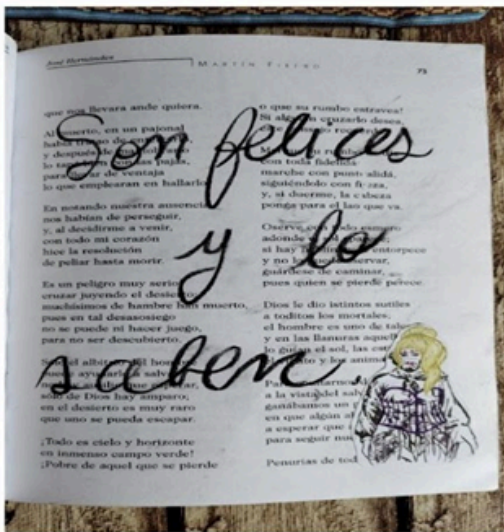 José Hernández
MARTÍN FIERRO
73
Son felices
y lo
saben
que nos llevara ande quiera.
Al muerto, en un pajonal
y después de
lo
para de ventaja
lo que emplearan en hallarlo
En notando nuestra ausencia
nos habían de perseguir,
y, al decidirme a venir,
con todo mi corazón
hice la resolución
de peliar hasta morir.
Es un peligro muy serio
cruzar juyendo el desierto
muchísimos de hambre han muerto,
pues en tal desasosiego
no se puede ni hacer juego,
para no ser descubierto.
sólo de Dios hay amparo;
en el desierto es muy raro
que uno se pueda escapar.
¡Todo es cielo y horizonte
en inmenso campo verde!
¡Pobre de aquel que se pierde
o que su rumbo estravea!
Si cruzarlo desea,
con toda fidelidá
marche con puntualidá,
siguiéndolo con
y, si duerme, la cabeza
ponga para el lao que va.
Oserve con todo
adonde
si hay entorpece
y no
guárdese de caminar,
pues quien se pierde perece.
Dios le dio istintos sutiles
a toditos los mortales;
el hombre es uno de tales
y en las llanuras
lo guían el sol, las
y los
a la vista del
ganábamos un
en que algún
a esperar que
para seguir
Penurias de